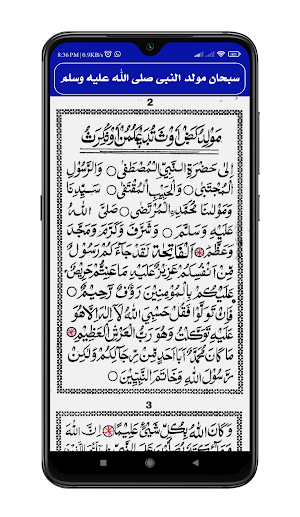 8:36 PM | 0.9KB/s
سبحان مولد النبى صلى الله عليه وسلم
2
مَوْلِدْ
اِلٰى حَضْرَةِ النَّبِيِّ الْمُصْطَفٰى ○ وَالرَّسُوْلِ
الْمُجْتَبٰى ○ وَالْحَبِيْبِ الْمُقْتَفٰى ○ سَيِّدِنَا
وَمَوْلٰنَا مُحَمَّدِ الْمُرْتَضٰى ○ صَلَّى اللهُ
عَلَيْهِ وَسَلَّمَ ○ وَشَرَّفَ وَكَرَّمَ وَمَجَّدَ
وَعَظَّمَ اَلْفَاتِحَةْ لَقَدْ جَاءَكُمْ رَسُوْلٌ
مِّنْ اَنْفُسِكُمْ عَزِيْزٌ عَلَيْهِ مَا عَنِتُّمْ حَرِيْصٌ
عَلَيْكُمْ بِالْمُؤْمِنِيْنَ رَؤُفٌ رَّحِيْمٌ
فَاِنْ تَوَلَّوْا فَقُلْ حَسْبِيَ اللهُ لَا اِلٰهَ اِلَّا هُوَ
عَلَيْهِ تَوَكَّلْتُ وَهُوَ رَبُّ الْعَرْشِ الْعَظِيْمِ
مَا كَانَ مُحَمَّدٌ اَبَا اَحَدٍ مِّنْ رِّجَالِكُمْ وَلٰكِنْ
رَّسُوْلَ اللهِ وَخَاتَمَ النَّبِيِّيْنَ ○
3
وَكَانَ اللهُ بِكُلِّ شَيْءٍ عَلِيْمًا اِنَّ اللهَ